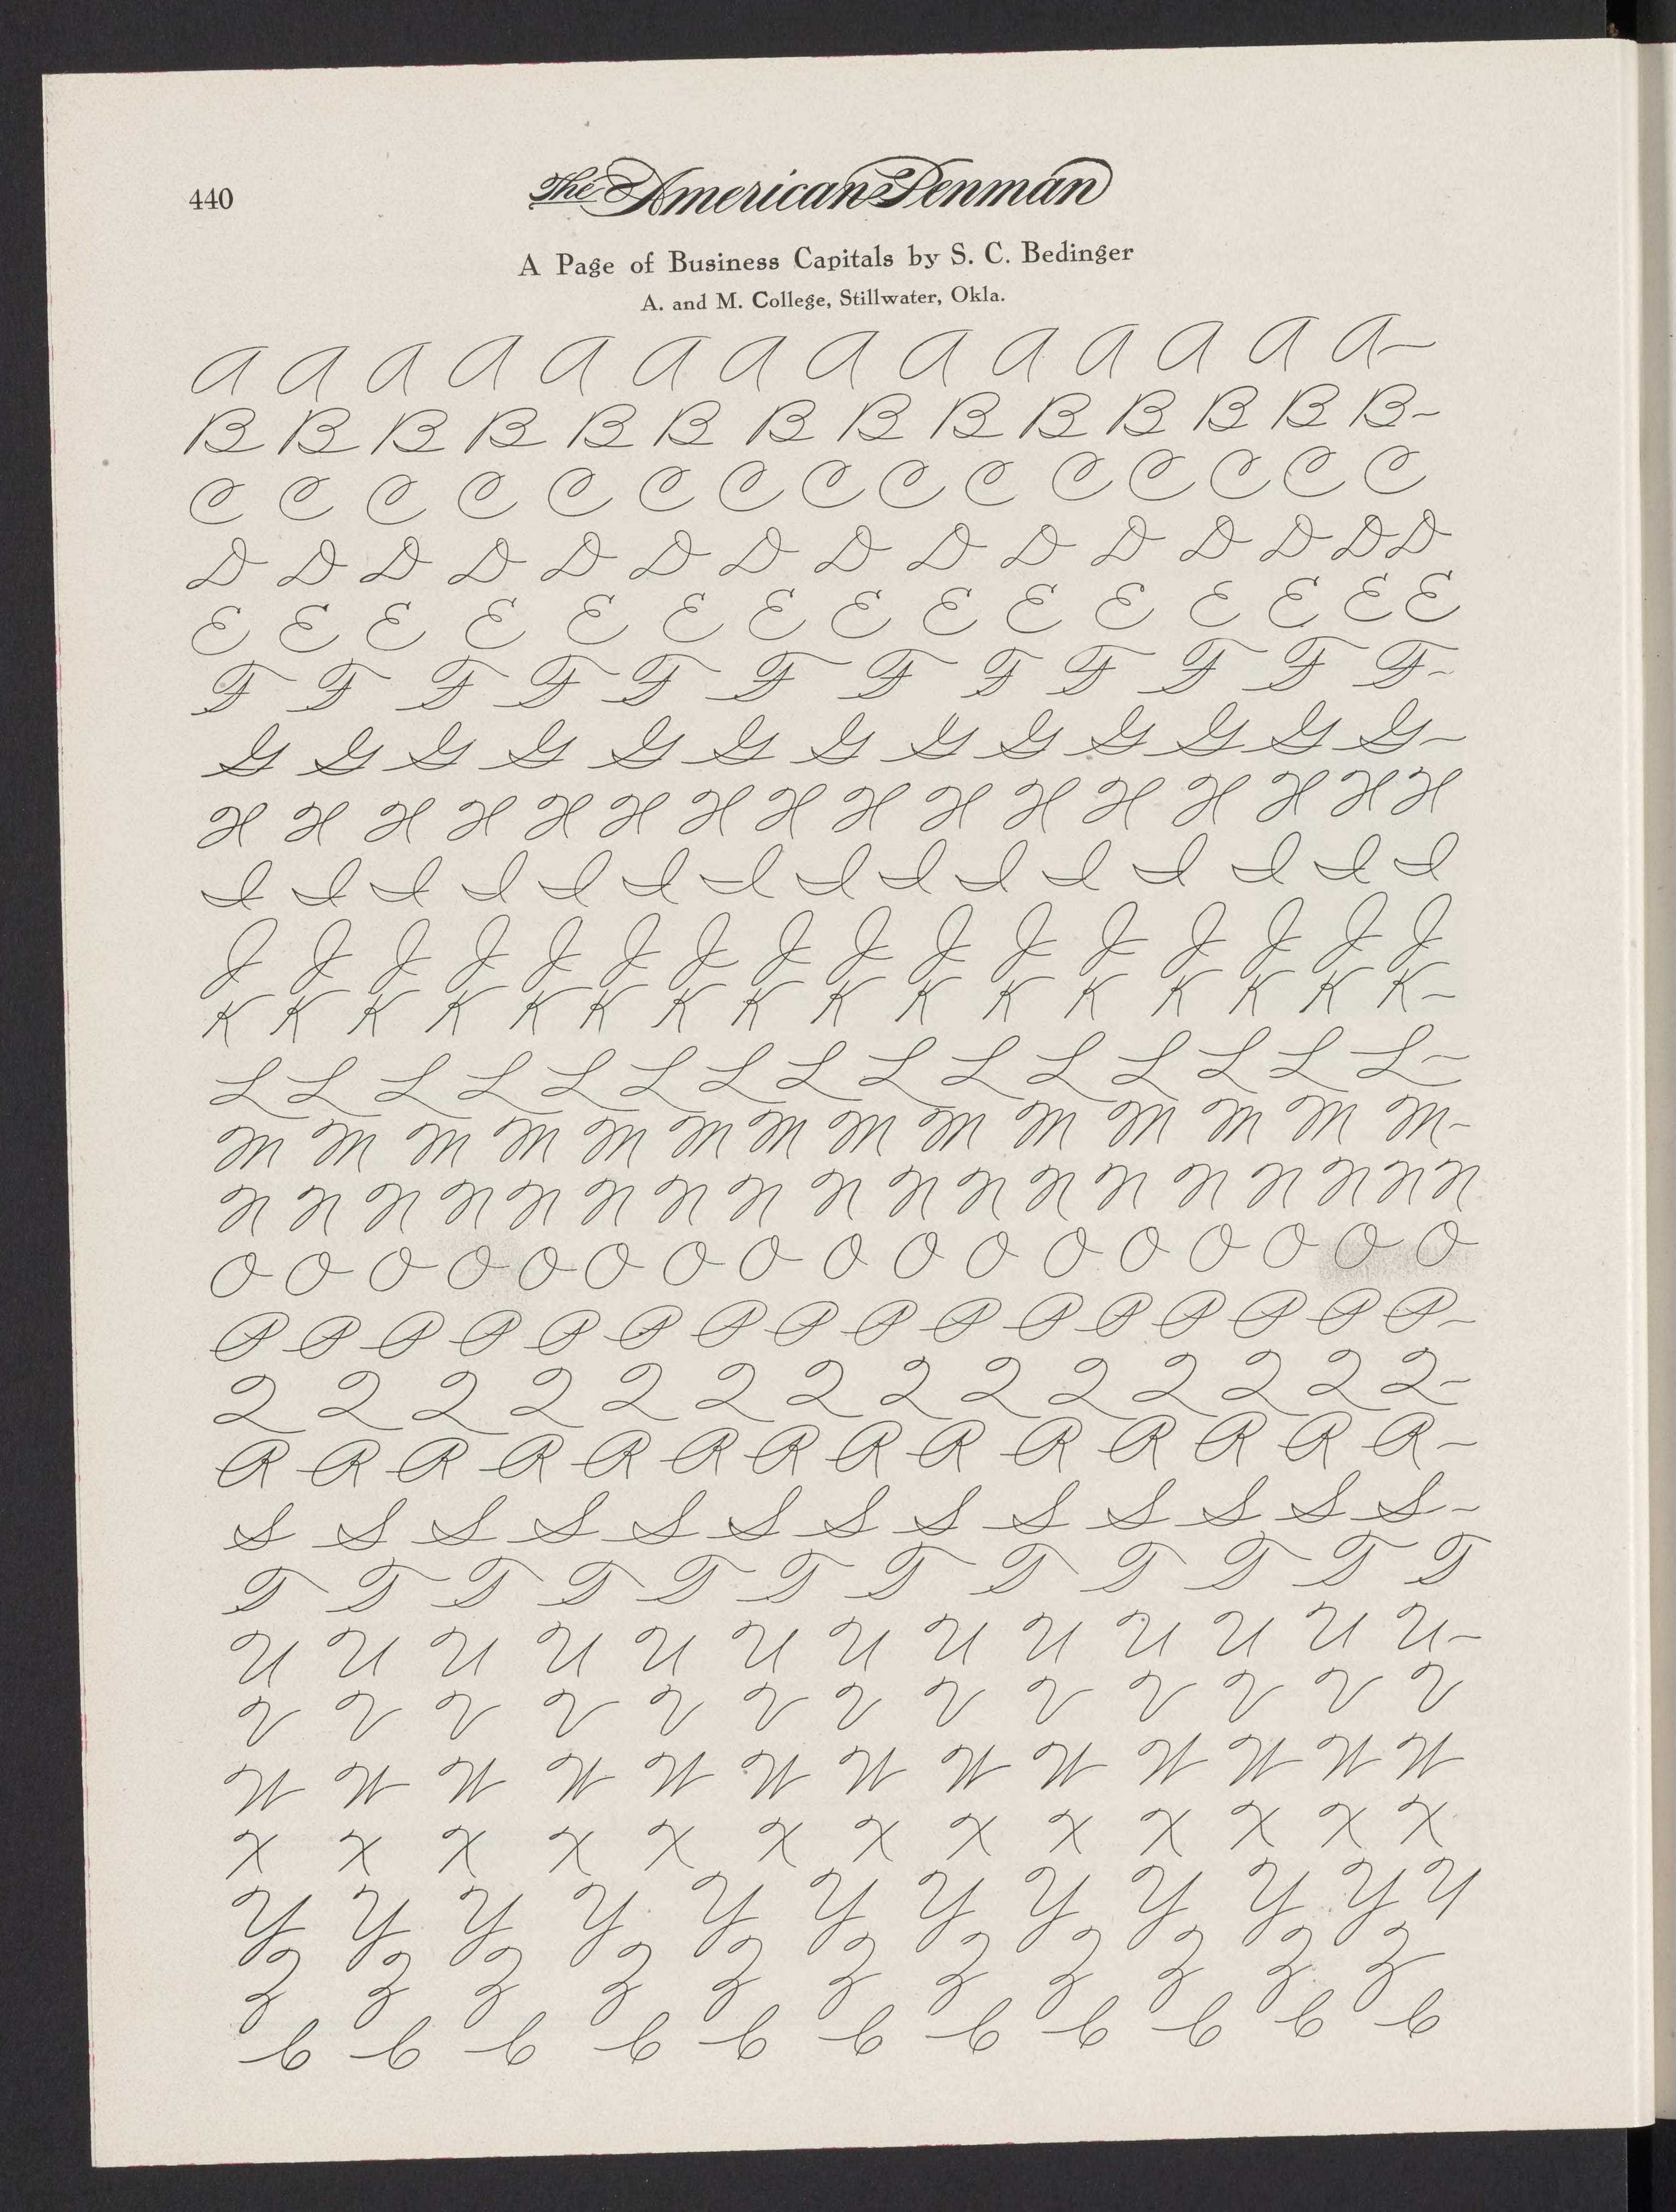 440
The American Penman
A Page of Business Capitals by S. C. Bedinger
A. and M. College, Stillwater, Okla.
A A A A A A A A A A A A A A
B B B B B B B B B B B B B B
C C C C C C C C C C C C C C C
D D D D D D D D D D D D D D D
E E E E E E E E E E E E E E E
F F F F F F F F F F F F
G G G G G G G G G G G G G
H H H H H H H H H H H H H H H H
I I I I I I I I I I I I I I I
J J J J J J J J J J J J J J J J
K K K K K K K K K K K K K K K K
L L L L L L L L L L L L L L L
M M M M M M M M M M M M M M
N N N N N N N N N N N N N N N N N N
O O O O O O O O O O O O O O O O O
P P P P P P P P P P P P P P P P
Q Q Q Q Q Q Q Q Q Q Q Q Q Q
R R R R R R R R R R R R R R
S S S S S S S S S S S S S
T T T T T T T T T T T T
U U U U U U U U U U U U U
V V V V V V V V V V V V V
W W W W W W W W W W W W W
X X X X X X X X X X X X X
Y Y Y Y Y Y Y Y Y Y Y Y
Z Z Z Z Z Z Z Z Z Z Z